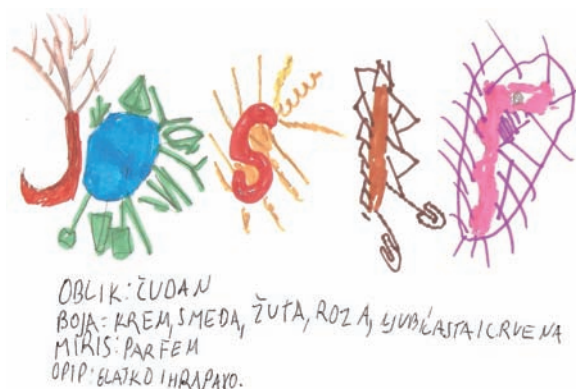 JOSIP
OBLIK: ČUDAN
BOJA= KREM, SMEĐA, ŽUTA, ROZA, LJUBIČASTA I CRVENA
MIRIS: PARFEM
OPIP: GLATKO I HRAPAVO.